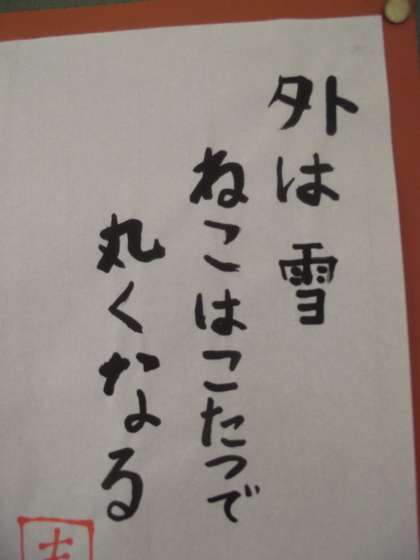 外は雪
ねこはこたつで
丸くなる